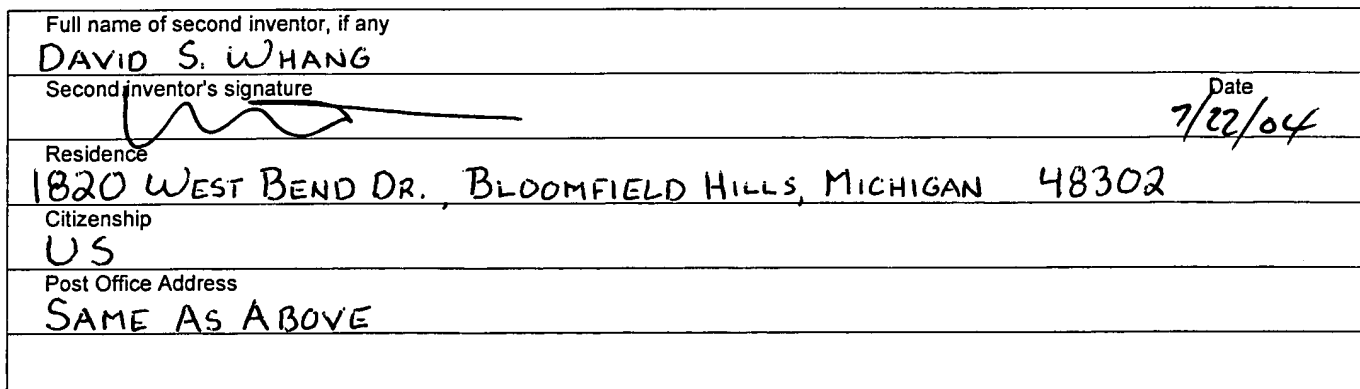 Full name of second inventor, if any
DAVID S. WHANG
Second inventor's signature Date
7/22/04
Residence
1820 WEST BEND DR., BLOOMFIELD HILLS, MICHIGAN 48302
Citizenship
US
Post Office Address
SAME AS ABOVE